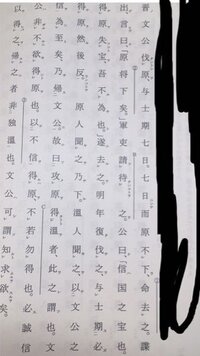 晋文公伐原、与士期七日。七日而原不下。命去之。諜
出言曰、「原将下矣。」軍吏請待之。公曰、「信国之宝也。
得原失宝、吾不為也。」遂去之。明年復伐之、与士期必
得原然後反。原人聞之乃下。温人聞之、以文公之
信為至矣、乃帰文公。故曰攻原得温者、此之謂也。文
公非不欲得原也。以不信得原、不若勿得也。必誠信
以得之、帰之者非独温也。文公可謂知求欲矣。